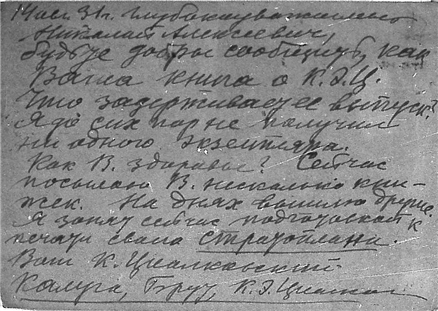 14 авг. 31 г. Глубокоуважаемый
Николай Алексеевич,
будьте добры сообщить, как
Ваша книга о К.Э.Ц.
Что задерживает ее выпуск?
Я до сих пор не получил
ни одного экземпляра.
Как В. здоровье? Сейчас
посылаю В. несколько кни-
жек. На днях вышлю другие.
Я занят сейчас подготовкой к
печати своего стратоплана.
Ваш К. Циолковский
Калуга, Брут, К.Э.Циолков